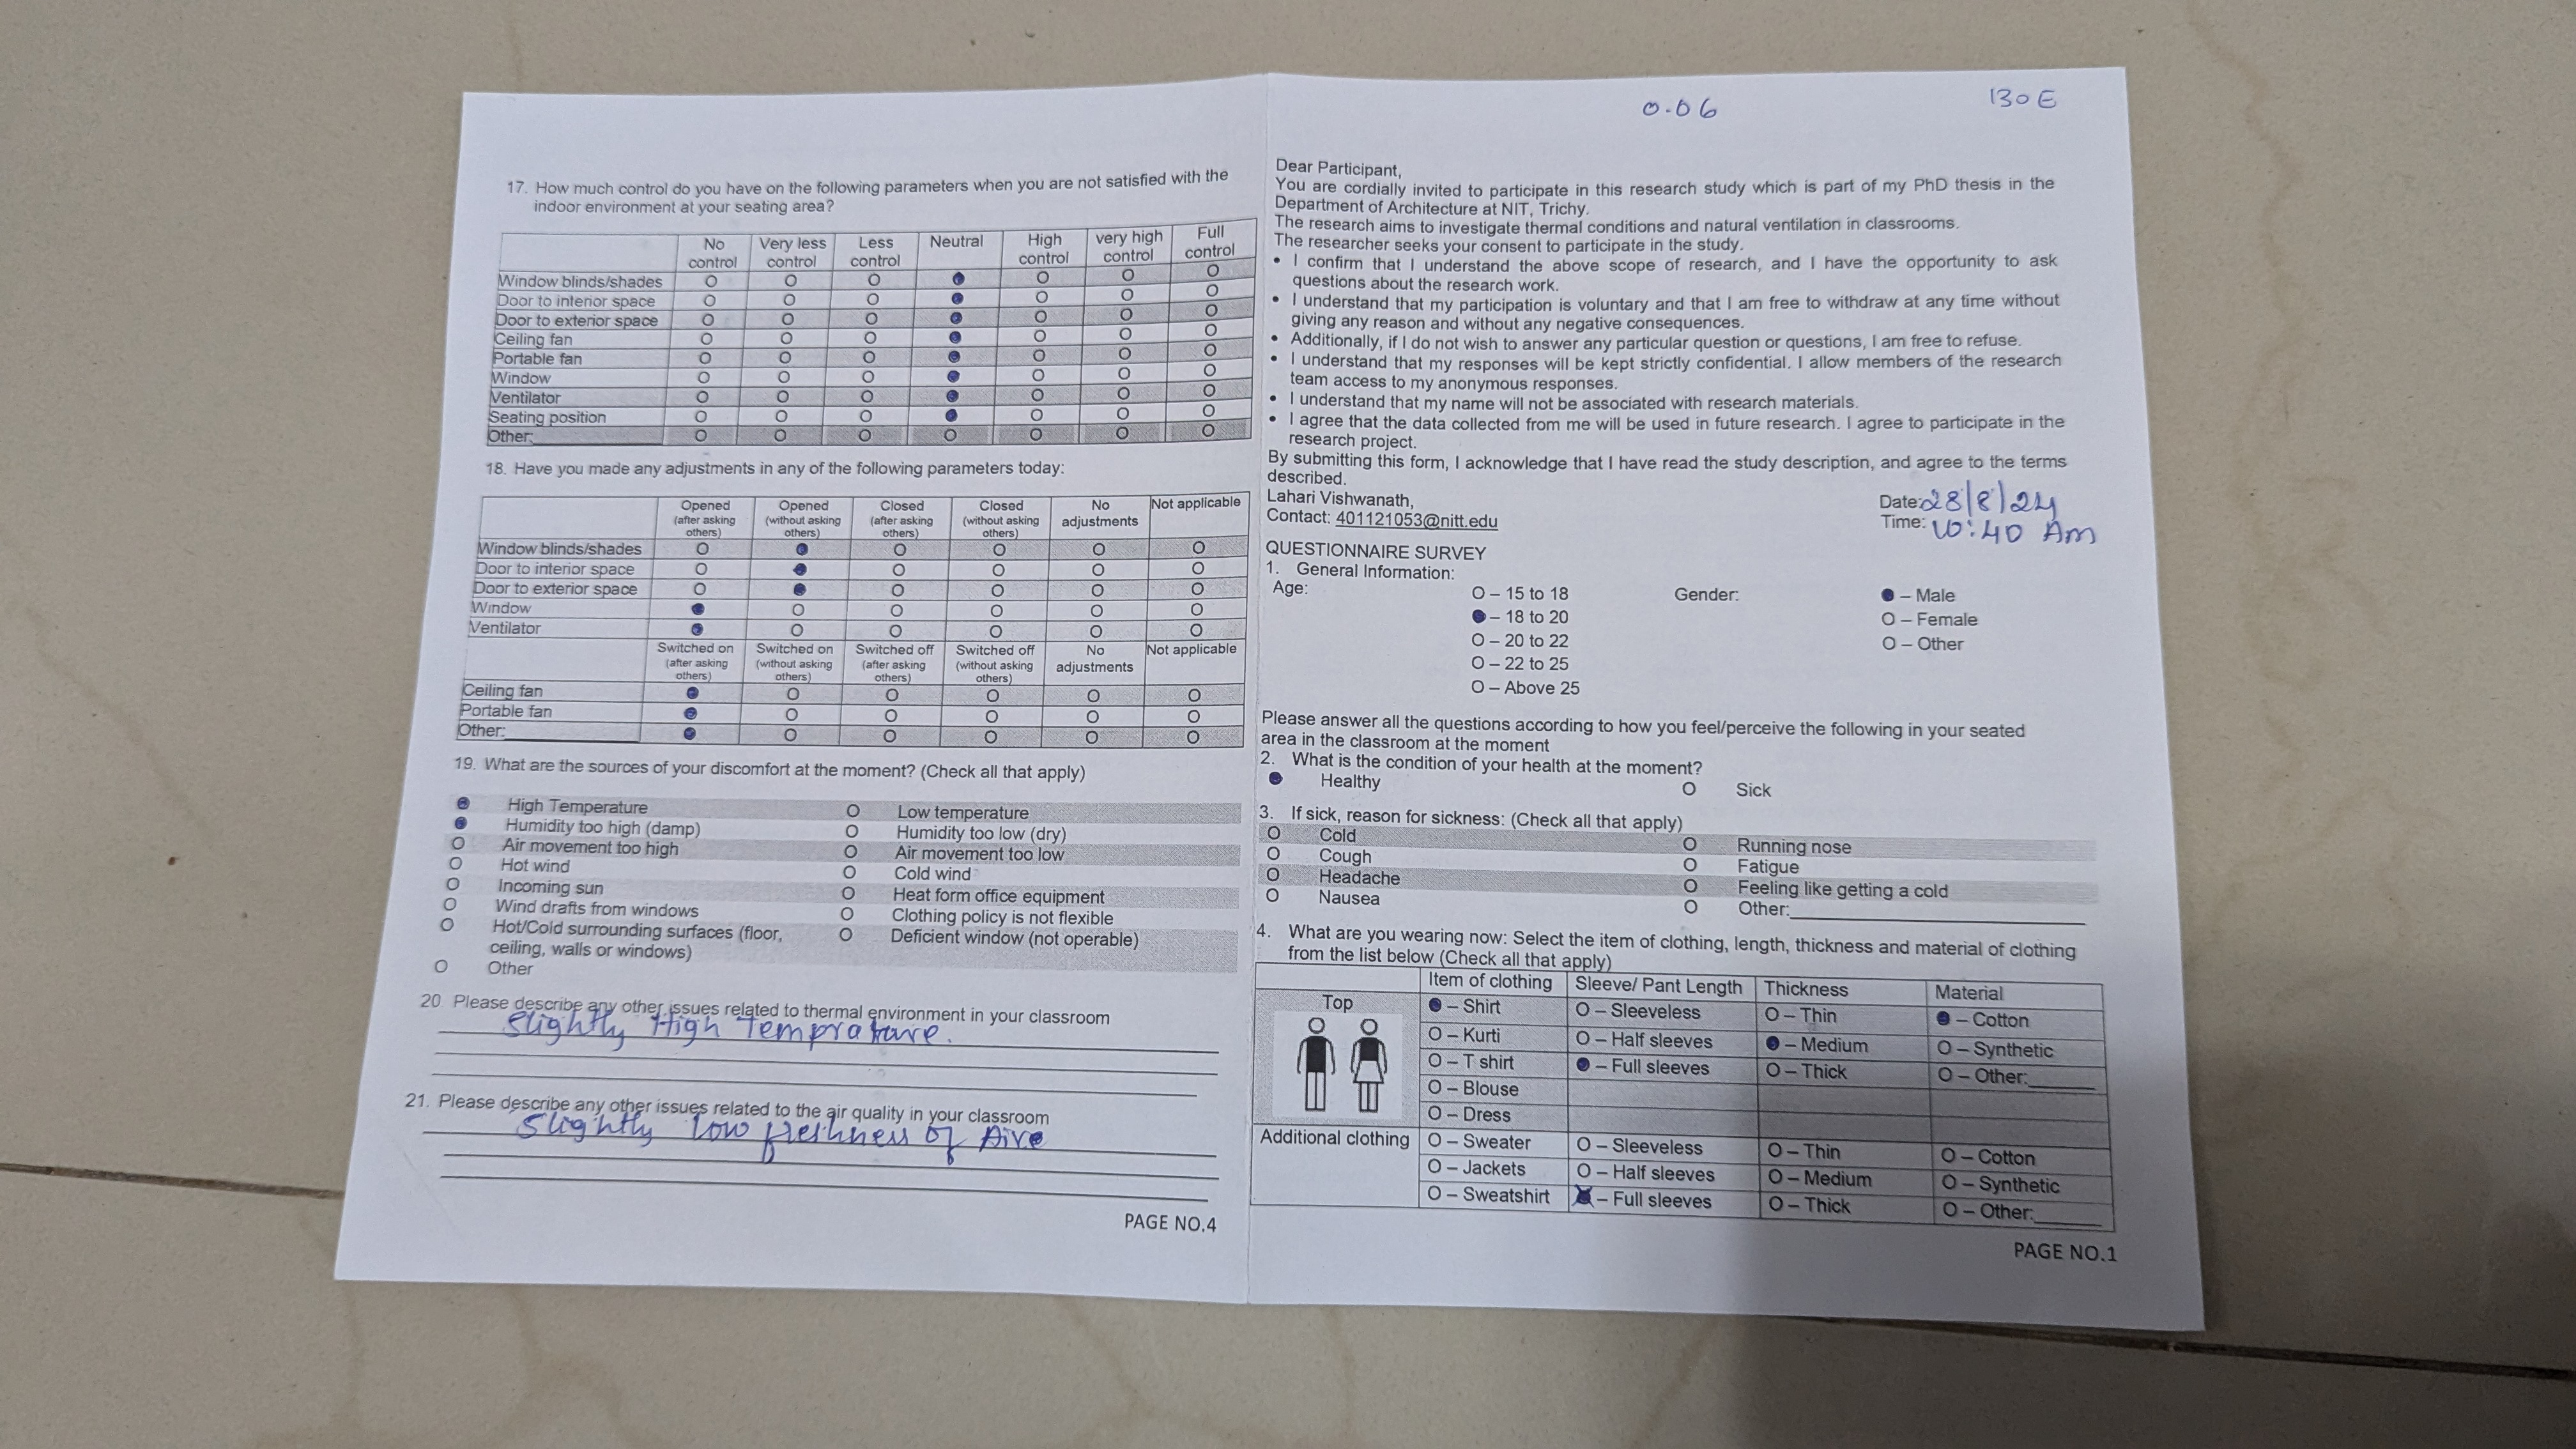 17. How much control do you have on the following parameters when you are not satisfied with the
indoor environment at your seating area?
No control Very less control Less control Neutral High control very high control Full control
Window blinds/shades O O O ● O O O
Door to interior space O O O ● O O O
Door to exterior space O O O ● O O O
Ceiling fan O O O ● O O O
Portable fan O O O ● O O O
Window O O O ● O O O
Ventilator O O O ● O O O
Seating position O O O ● O O O
Other:________ O O O O O O O
18. Have you made any adjustments in any of the following parameters today:
Opened (after asking others) Opened (without asking others) Closed (after asking others) Closed (without asking others) No adjustments Not applicable
Window blinds/shades O ● O O O O
Door to interior space O ● O O O O
Door to exterior space O ● O O O O
Window ● O O O O O
Ventilator ● O O O O O
Switched on (after asking others) Switched on (without asking others) Switched off (after asking others) Switched off (without asking others) No adjustments Not applicable
Ceiling fan ● O O O O O
Portable fan ● O O O O O
Other:________ ● O O O O O
19. What are the sources of your discomfort at the moment? (Check all that apply)
● High Temperature O Low temperature
● Humidity too high (damp) O Humidity too low (dry)
O Air movement too high O Air movement too low
O Hot wind O Cold wind
O Incoming sun O Heat form office equipment
O Wind drafts from windows O Clothing policy is not flexible
O Hot/Cold surrounding surfaces (floor, O Deficient window (not operable)
ceiling, walls or windows)
O Other
20 Please describe any other issues related to thermal environment in your classroom
Slightly High Temprature.
21. Please describe any other issues related to the air quality in your classroom
Slightly low freshness of Aire
PAGE NO.4
0.06 130E
Dear Participant,
You are cordially invited to participate in this research study which is part of my PhD thesis in the
Department of Architecture at NIT, Trichy.
The research aims to investigate thermal conditions and natural ventilation in classrooms.
The researcher seeks your consent to participate in the study.
• I confirm that I understand the above scope of research, and I have the opportunity to ask
questions about the research work.
• I understand that my participation is voluntary and that I am free to withdraw at any time without
giving any reason and without any negative consequences.
• Additionally, if I do not wish to answer any particular question or questions, I am free to refuse.
• I understand that my responses will be kept strictly confidential. I allow members of the research
team access to my anonymous responses.
• I understand that my name will not be associated with research materials.
• I agree that the data collected from me will be used in future research. I agree to participate in the
research project.
By submitting this form, I acknowledge that I have read the study description, and agree to the terms
described.
Lahari Vishwanath, Date: 28/8/24
Contact: 401121053@nitt.edu Time: 10:40 Am
QUESTIONNAIRE SURVEY
1. General Information:
Age: O – 15 to 18 Gender: ● – Male
● – 18 to 20 O – Female
O – 20 to 22 O – Other
O – 22 to 25
O – Above 25
Please answer all the questions according to how you feel/perceive the following in your seated
area in the classroom at the moment
2. What is the condition of your health at the moment?
● Healthy O Sick
3. If sick, reason for sickness: (Check all that apply)
O Cold O Running nose
O Cough O Fatigue
O Headache O Feeling like getting a cold
O Nausea O Other:________
4. What are you wearing now: Select the item of clothing, length, thickness and material of clothing
from the list below (Check all that apply)
Item of clothing Sleeve/ Pant Length Thickness Material
Top ● – Shirt O – Sleeveless O – Thin ● – Cotton
O – Kurti O – Half sleeves ● – Medium O – Synthetic
O – T shirt ● – Full sleeves O – Thick O – Other:______
O – Blouse
O – Dress
Additional clothing O – Sweater O – Sleeveless O – Thin O – Cotton
O – Jackets O – Half sleeves O – Medium O – Synthetic
O – Sweatshirt – Full sleeves O – Thick O – Other:______
PAGE NO.1